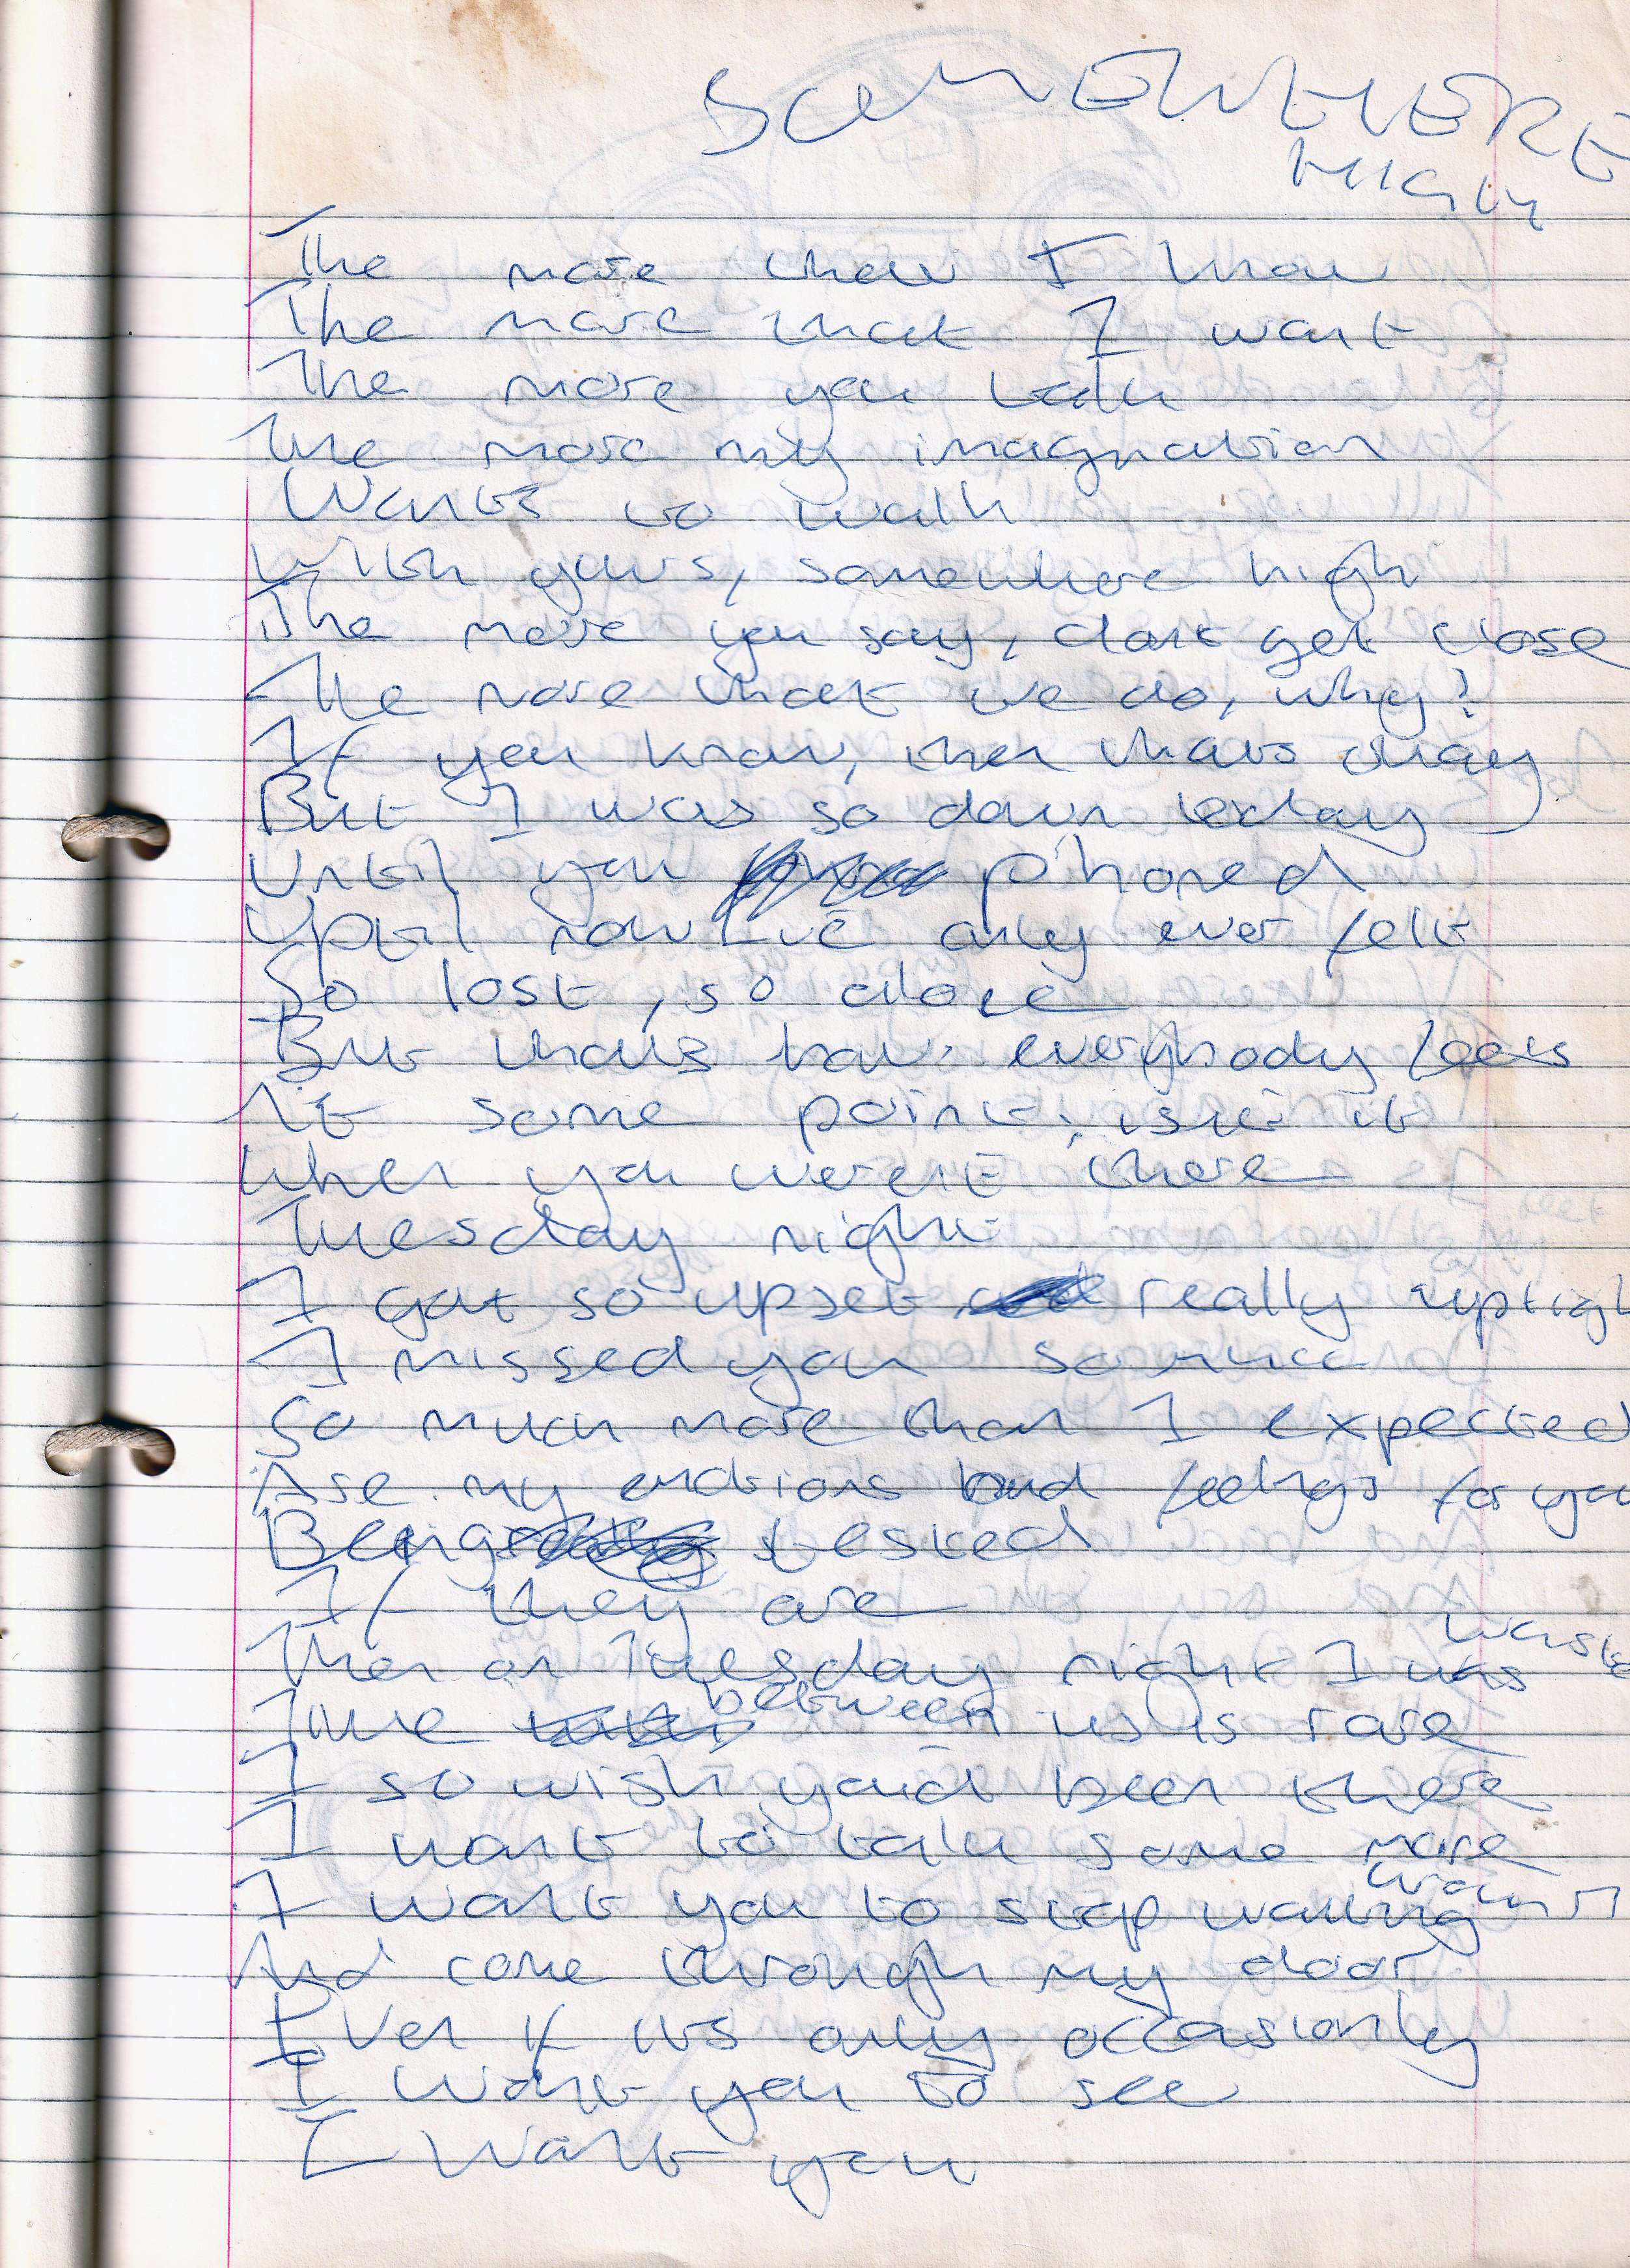 SOMEWHERE
HIGH
The more that I know
The more that I want
The more you talk
The more my imagnation
Wants to walk
With yours, somewhere high
The more you say, dont get close
The more that we do, why?
If you know, then thats okay
But I was so down today
Until you phoned
Uptil now I've only ever felt
So lost, so alone
But thats how everybody feels
At some point, isn't it
When you werent there
Tuesday night
I got so upset really uptigh
I missed you so much
So much more than I expected
Are my emotions and feelings for you
Being tested
If they are
Then on Tuesday night I was
Time between us is rare
I so wish you'd been there
I want to talk some more
I want you to stop walking
And come through my door
Even if its only occasionly
I want you to see
I want you